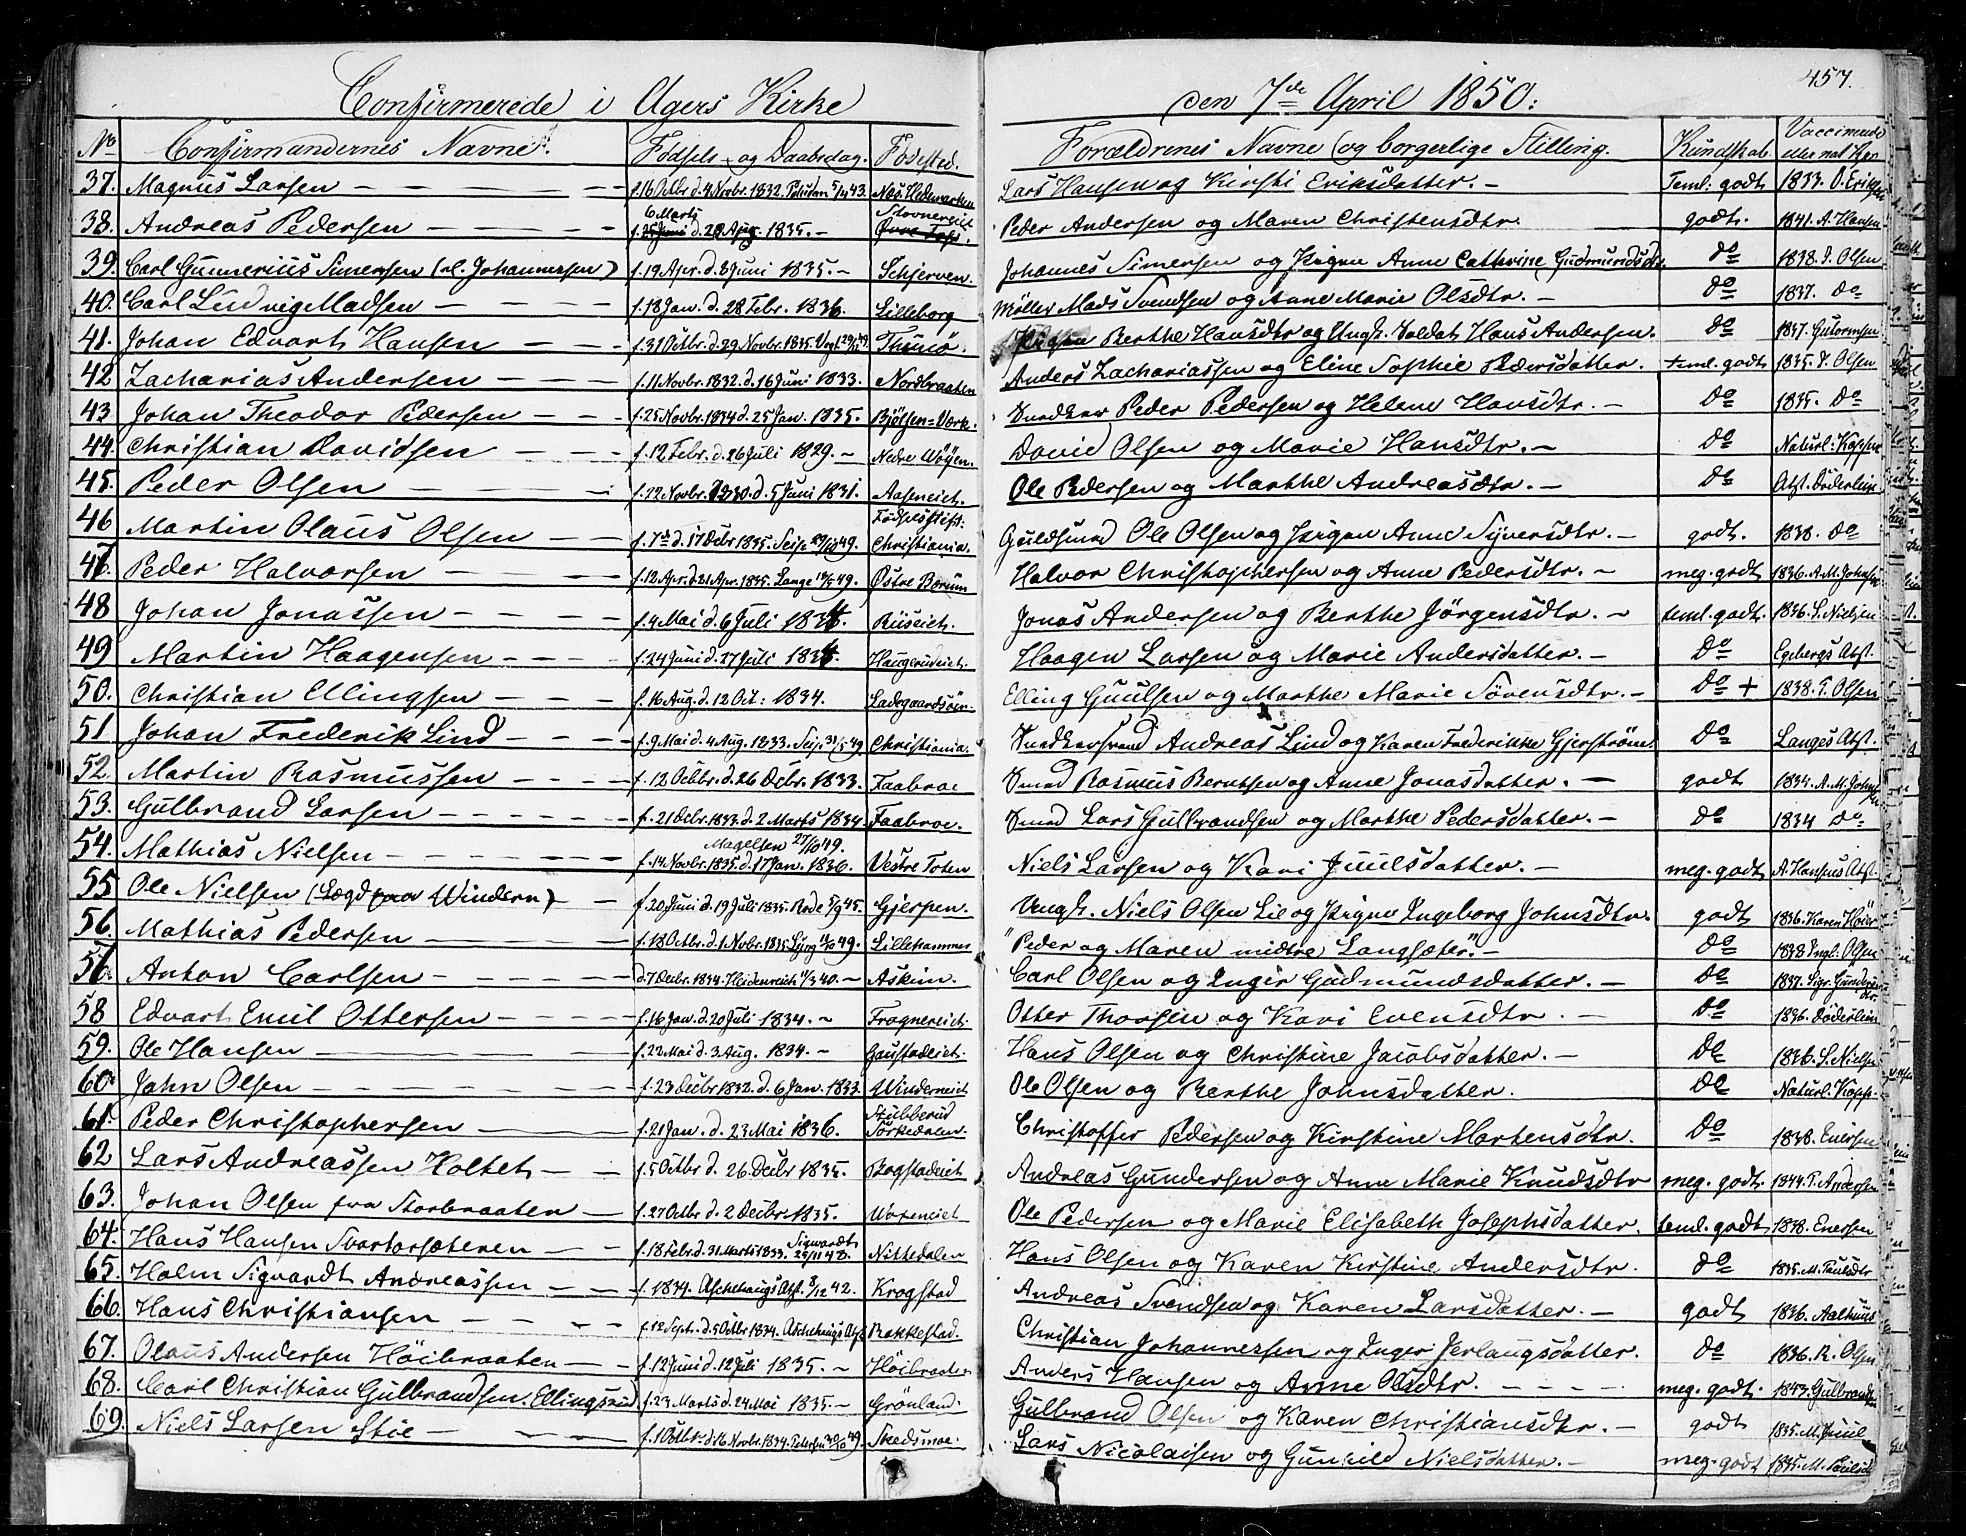 457.
Confirmerede i Agers Kirke den 7de April 1850:
No Confirmandernes Navne. Fødsels- og Daabsdag. Fødested. Forældrenes Navne (og borgerlige Stilling. Kundskab Vaccinerede
37. Magnus Larsen f. 16 Octbr. d. 4 Novbr. 1832. Næs. Hedemarken Lars Hansen og Kirsti Eriksdatter. Teml: godt 1833. O. Eriksen
38. Andreas Pedersen 6 Marts f. 25 Juni d. 20 Apr. 1835. Stovnereiet Peder Andersen og Maren Christensdtr. godt. 1841. A. Hansen
39. Carl Gunnerius Simensen (el. Johannessen) f. 19 Apr. d. 8 Juni 1835. Schjerven. Johannes Simensen og Pigen Anne Cathrine Gudmundsdtr. Do 1838. T. Olsen
40. Carl Ludvig Madsen f. 18 Jan. d. 28 Febr. 1836. Lilleborg Møller Mads Svendsen og Anne Marie Olsdtr. Do 1837. Do
41. Johan Edvart Hansen f. 31 Octbr. d. 29 Novbr. 1835. Thunø. Pigen Berthe Hansdtr og Ungk. Soldat Hans Andersen. Do 1837. Gutormsen
42 Zacharias Andersen f. 11 Novbr. 1832. d. 16 Juni 1833. Nordbraaten Anders Zachariassen og Eline Sophie Pedersdatter. teml: godt 1835. T. Olsen
43 Johan Theodor Pedersen f. 25 Novbr. 1834 d. 25 Jan. 1835. Bjølsen=Værk. Snedker Peder Pedersen og Helene Hansdtr. Do 1835. Do
44. Christian Davidsen f. 12 Febr. d. 26 Juli 1829. Nedre Vøyen. David Olsen og Marie Hansdtr. Do Naturl: Kopper
45. Peder Olsen f. 12 Novbr. 1830. d. 5 Juni 1831. Aaseneiet. Ole Pedersen og Marthe Andreasdtr. Do Atst. Døderlein
46 Martin Olaus Olsen f. 7de d. 17 Debr 1835. Seip 29/10 49. Fødselsstift: Christiania. Guldsmed Ole Olsen og Pigen Anne Syversdtr. godt. 1838. Do
47. Peder Halvorsen f. 12 Apr. d. 21 Apr. 1835. Lange 10/9 49. Østre Bærum Halvor Christophersen og Anne Pedersdtr. meg. godt 1836. A. M. Johnsen
48 Johan Jonassen f. 4 Mai d. 6 Juli 1834. Riiseiet. Jonas Andersen og Berthe Jörgensdtr. teml. godt. 1836. S. Nielsen
49 Martin Haagensen f. 24 Juni d. 27 Juli 1834. Haugerudeiet. Haagen Larsen og Marie Andersdatter. Do Egebergs Atst.
50. Christian Ellingsen f. 16 Aug. d. 12 Oct: 1834. Ladegaardsøen. Elling Guulsen og Marthe Marie Sørensdtr. Do + 1838. T. Olsen
51 Johan Frederik Lind f. 9 Mai d. 4 Aug. 1833. Seip 31/ 49 Christiania. Snedkersvend Andreas Lind og Karen Frederikke Gjerstrøm. Do Langes Atst.
52. Martin Rasmussen f. 12 Octbr. d. 26 Debr. 1833. Faabroe Smed Rasmus Berntsen og Anne Jonasdatter. godt 1834. A. M. Johnsen
53. Gulbrand Larsen f. 21 Debr. 1833. d. 2 Marts 1834. Faabroe. Smed Lars Gulbrandsen og Marthe Pedersdatter. Do 1834 Do
54. Mathias Nielsen Magelsen 27/10 49. f. 14 Novbr. 1835 d. 17 Jan. 1836. Vestre Toten Niels Larsen og Kari Juulsdatter. meg. godt A. Hansens Atst.
55 Ole Nielsen (Lægd paa Windern) f. 20 Juni d. 19 Juli 1835. Rode 5/9 45. Gjerpen. Ungk. Niels Olsen Lie og Pigen Ingeborg Johnsdtr. godt 1836. Karen Høier
56. Mathias Pedersen f. 18 Octbr. d. 1 Novbr. 1835 49. Lillehammer "Peder og Maren midtre Langsæter." Do 1838 Ingl: Olsen
57. Anton Carlsen d. 7 Decbr. 1834. Heidenreich 40. Askim. Carl Olsen og Inger Gudmundsdatter. Do 1837.
58 Edvart Emil Ottersen f. 16 Jan. d. 20 Juli 1834. Frognereiet. Otter Thorsen og Kari Evensdtr. Do 1836. Døderlein
59. Ole Hansen f. 22 Mai d. 3 Aug. 1834. Gaustadeiet. Hans Olsen og Christine Jacobsdatter. Do 1836. S. Nielsen
60. John Olsen f. 23 Decbr 1832. d. 6 Jan. 1833. Winderneiet Ole Olsen og Berthe Johnsdatter. Do Naturl. Kopp.
61. Peder Christophersen f. 21 Jan. d. 23 Mai 1836. Stubberud Sørkedalen. Christoffer Pedersen og Kirstine Mortensdtr. Do 1838. Enersen
62 Lars Andreassen Holtet f. 5 Octbr d. 26 Decbr 1835. Bogstadeiet Andreas Gundersen og Anne Marie Knudsdtr meg. godt. 1844. T. Andersen
63. Johan Olsen fra Storbraaten f. 27 Octbr d. 2 Decbr. 1835. Ole Pedersen og Marie Elisabeth Josephsdatter. teml. godt 1838. Enersen
64. Hans Hansen Svartorsæteren f. 18 Febr. d. 31 Marts 1833. Sigwardt 25/11 48. Nittedalen Hans Olsen og Karen Kirstine Andersdtr. Do 1835. M. Paulsdtr
65. Holm Sigvardt Andreassen f. 1834. Aschehougs Atst. 8/12 42. Krogstad Andreas Svendsen og Karen Larsdatter. godt 1836. Aalhuus
66. Hans Christiansen f. 12 Sept. d. 5 Octbr 1834. Aschehougs Atst Rakkestad. Christian Johannessen og Inger Jerlaugsdatter. Do 1836. R. Olsen
67. Olaus Andersen Höibraaten f. 12 Juni d. 12 Juli 1835. Höibraaten Anders Hansen og Anne Olsdtr. meg. godt. 1843. Gulbrandsen
68. Carl Christian Gulbrandsen. Ellingsrud f. 23 Marts d. 24 Mai 1835. Grönland. Gulbrand Olsen og Karen Christiansdtr. godt 1835. M. Juul
69. Niels Larsen Stie f. 1 Octbr. d. 16 Novbr. 1834. Petersen 30/10 49. Skedsmoe. Lars Nicolaisen og Gunhild Nielsdatter. meg. godt 1835. M. Paulsd